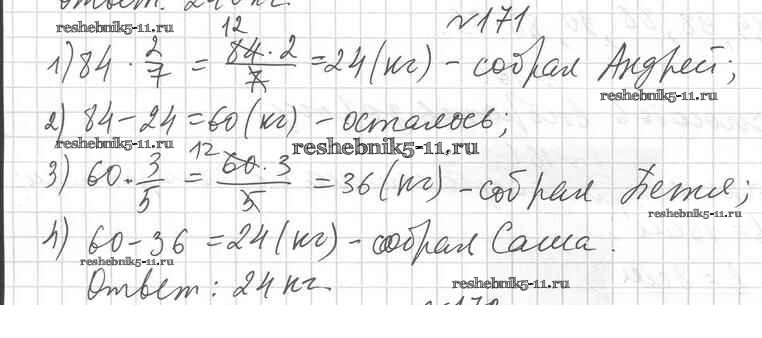 Ответ: 24 кг.
reshebnik5-11.ru
№171
12
1) 84 · 2/7 = 84 · 2/7 = 24 (кг) – собрал Андрей;
reshebnik5-11.ru
2) 84 – 24 = 60 (кг) – осталось;
reshebnik5-11.ru
reshebnik5-11.ru
12
3) 60 · 3/5 = 60 · 3/5 = 36 (кг) – собрал Петя;
reshebnik5-11.ru
4) 60 – 36 = 24 (кг) – собрал Саша.
reshebnik5-11.ru
Ответ: 24 кг.
reshebnik5-11.ru